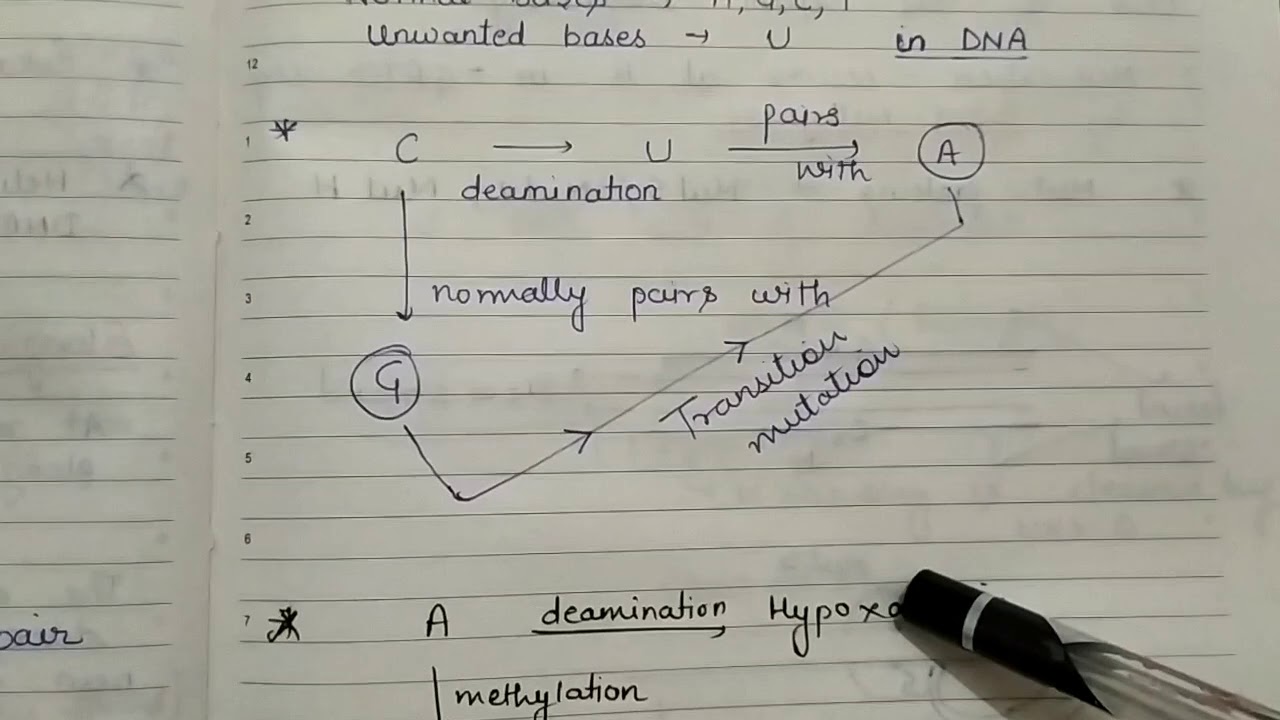 Unwanted bases → U in DNA
12
1 * C → U pairs with → A
deamination
2
3 normally pairs with
4 G Transition
mutation
5
6
7 * A deamination → Hypoxa
methylation